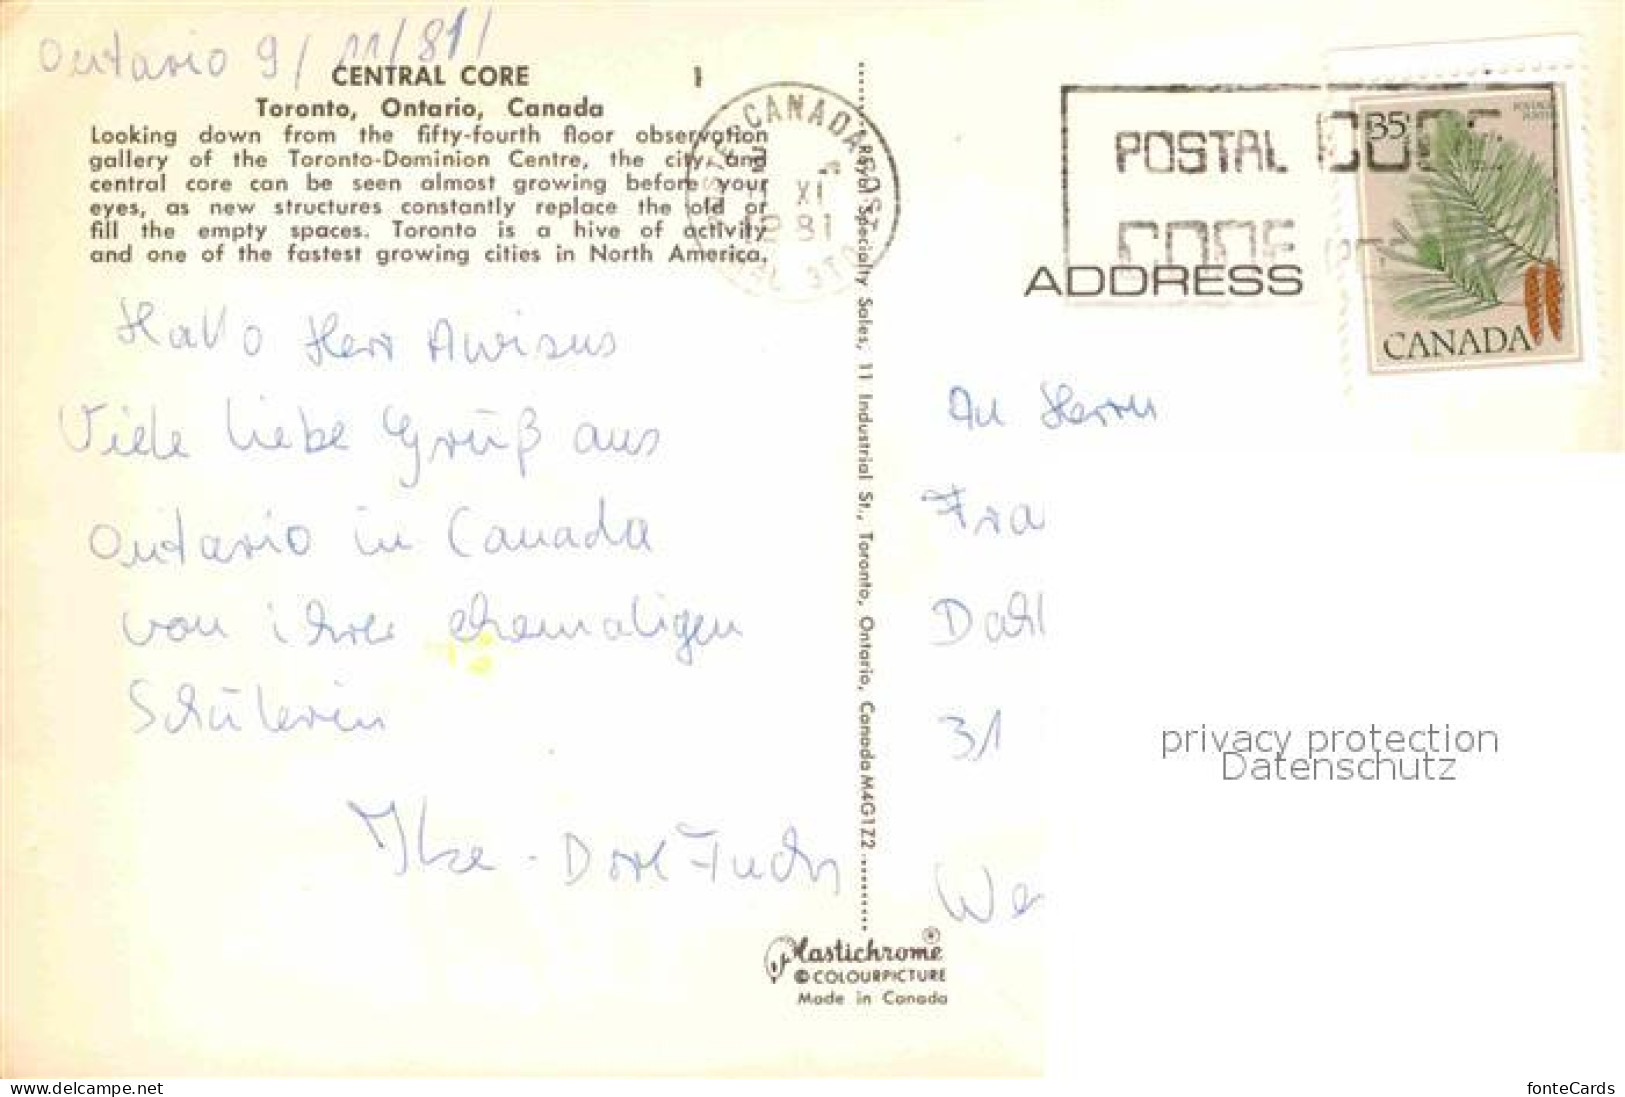 Ontario 9/11/81/
CENTRAL CORE 1
Toronto, Ontario, Canada
Looking down from the fifty-fourth floor observation
gallery of the Toronto-Dominion Centre, the city and
central core can be seen almost growing before your
eyes, as new structures constantly replace the old or
fill the empty spaces. Toronto is a hive of activity
and one of the fastest growing cities in North America.
Hallo Herr Awisus
Viele liebe Grüß aus
Ontario in Canada
von ihrer ehemaligen
Schülerin
Ilse - Dore Fuchs
Royal Specialty Sales, 11 Industrial St., Toronto, Ontario, Canada M4G1Z2
Plastichrome®
© COLOURPICTURE
Made in Canada
CANADA
XI
81
POSTAL CODE
CODE
ADDRESS
35
CANADA
An Herrn
Fra
Dahl
31
We
privacy protection
Datenschutz
www.delcampe.net
fonteCards